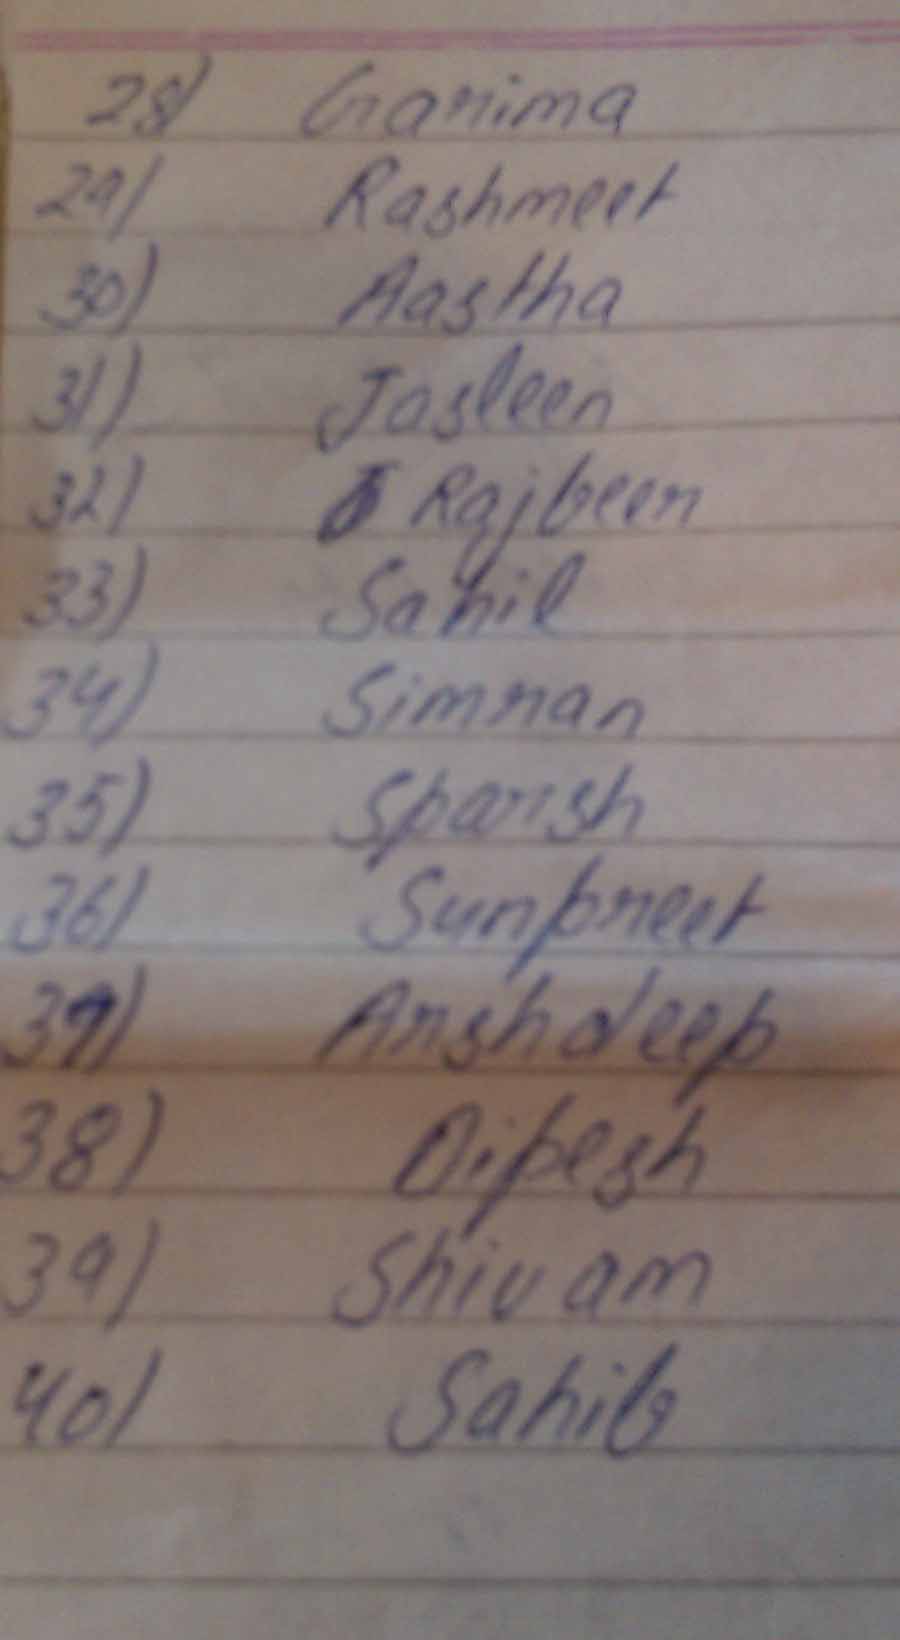 28) Garima
29) Rashmeet
30) Aastha
31) Jasleen
32) Rajbeer
33) Sahil
34) Simran
35) Sparish
36) Sunpreet
37) Arshdeep
38) Dipesh
39) Shivam
40) Sahib